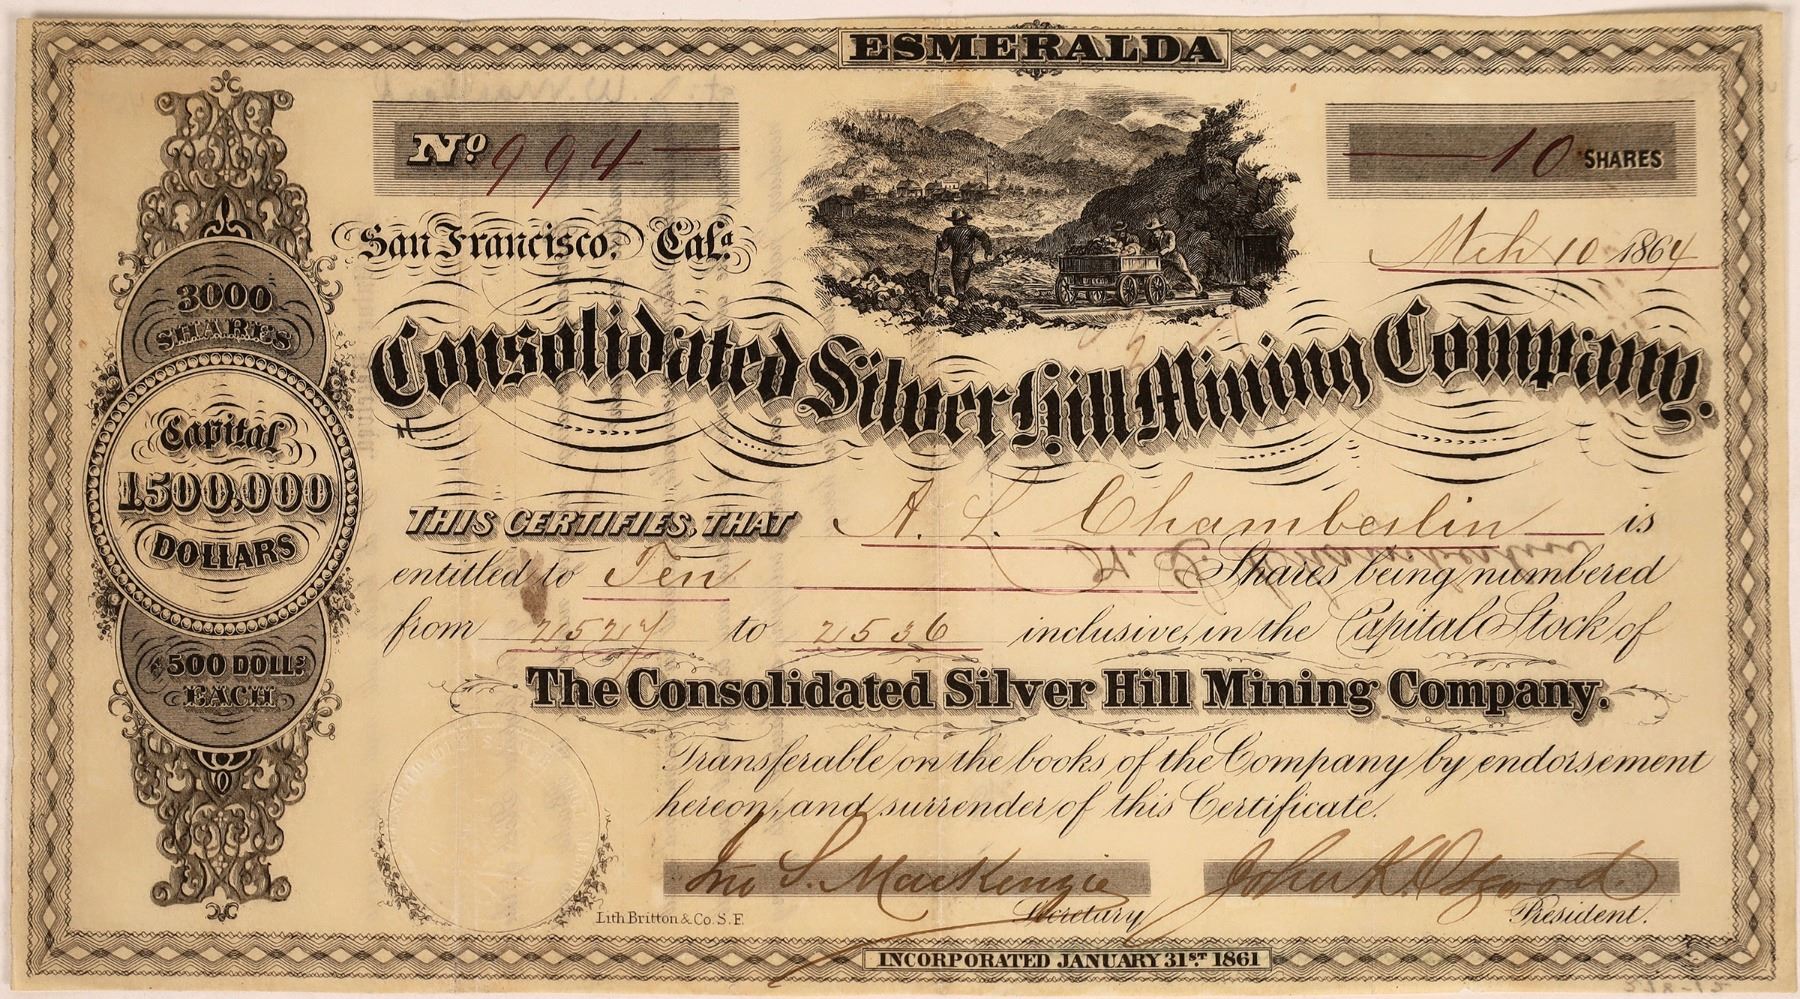 ESMERALDA
No. 994
10 SHARES
San Francisco, Cala.
Mch 10 1864
3000
SHARES
Capital
1500,000
DOLLARS
$500 DOLLS
EACH
Consolidated Silver Hill Mining Company.
THIS CERTIFIES, THAT A. L. Chamberlin is
entitled to Ten Shares being numbered
from 2527 to 2536 inclusive, in the Capital Stock of
The Consolidated Silver Hill Mining Company.
Transferable on the books of the Company by endorsement
hereon, and surrender of this Certificate.
Jno S. MacKenzie
Secretary
John K. Osgood
President.
Lith Britton & Co. S. F.
INCORPORATED JANUARY 31ST. 1861